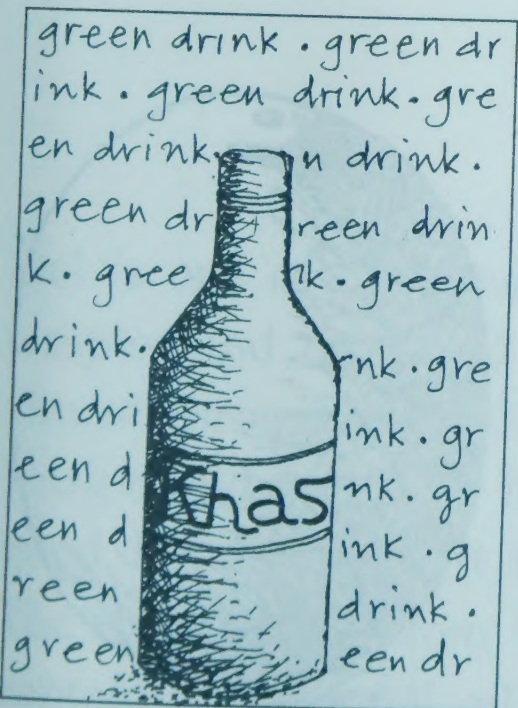 green drink . green dr
ink . green drink . gre
en drink. n drink .
green dr reen drin
k . gree nk . green
drink. nk . gre
en dri ink . gr
een d Khas nk . gr
een d ink . g
reen drink .
green een dr